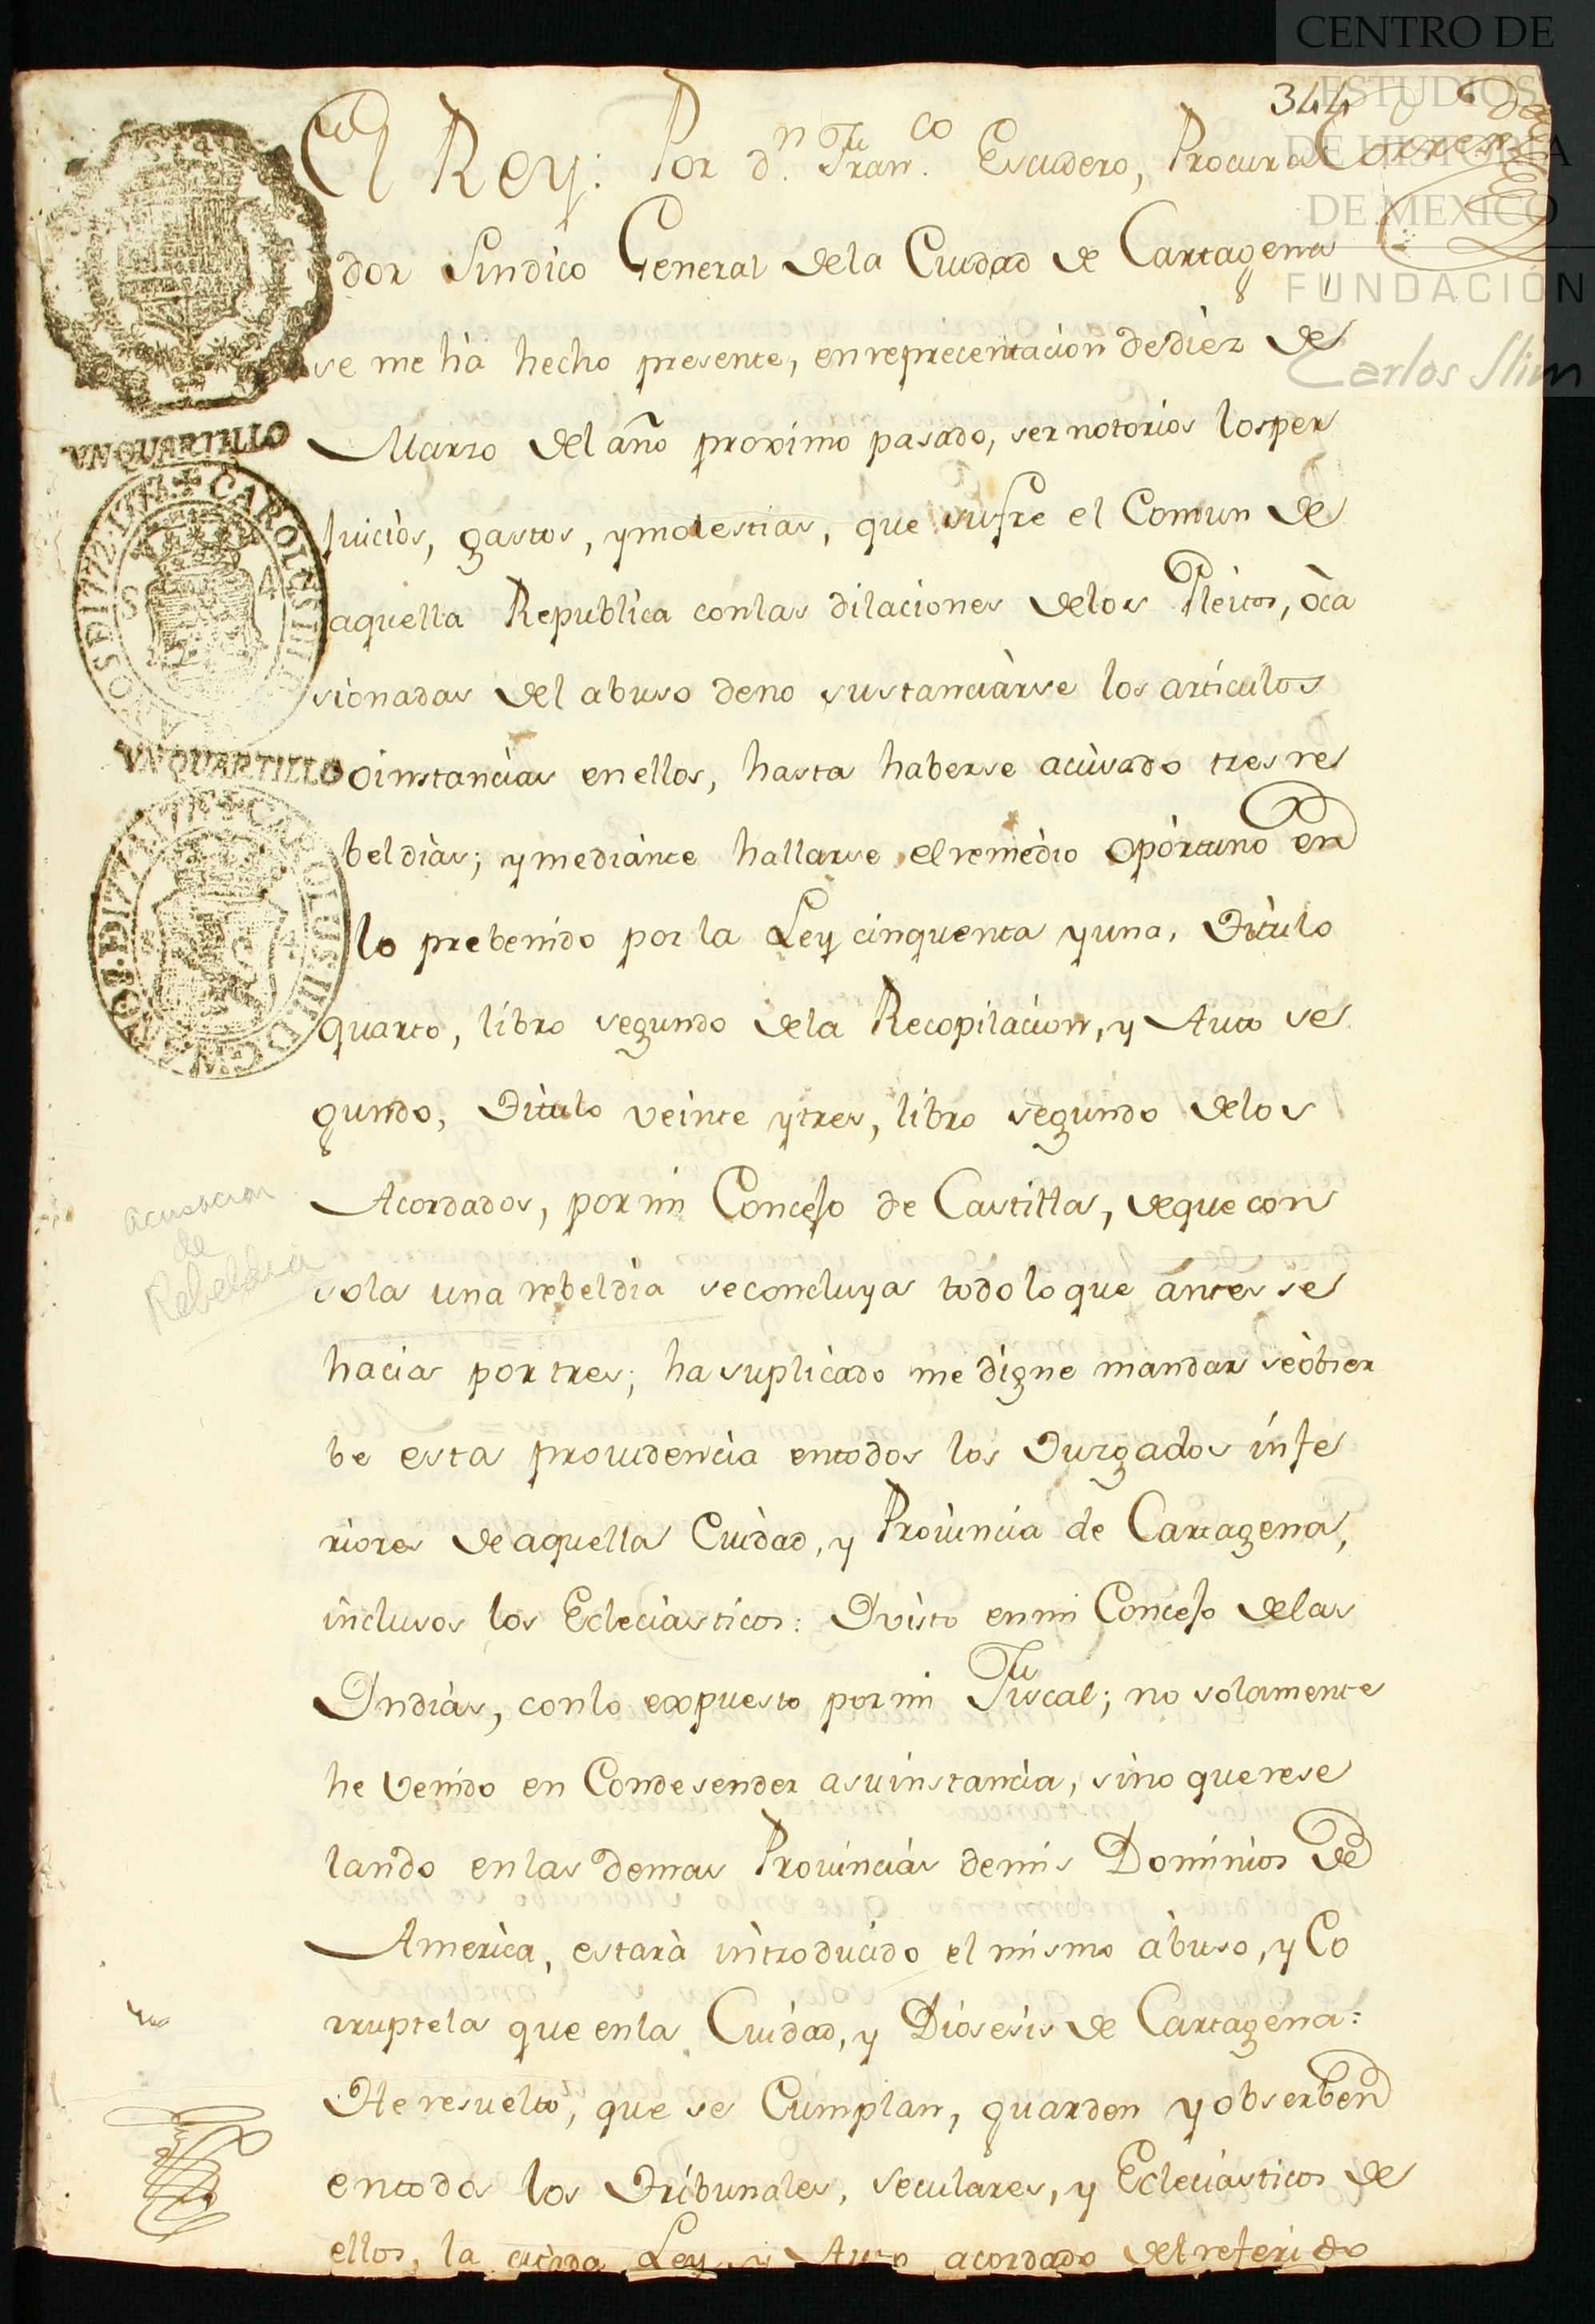 CENTRO DE
ESTUDIOS
DE HISTORIA
DE MEXICO
FUNDACIÓN
Carlos Slim
344
El Rey: Por dn. Franco. Escudero, Procura
dor Sindico General dela Ciudad de Cartagena
se me hà hecho presente, en reprecentacion dedièz de
Marzo del año proximo pasado, ser notorios los per
juiciòs, gastos, y molestias, que sufre el Comun de
aquella Republica con las dilaciones delos Pleitos, òca
sionadas del abuso deno sustanciàrse los articulos
o instancias en ellos, hasta haberse acùsado tres re
beldias; y mediànte hallarse el remèdio opòrtuno en
lo prebenido por la Ley cinquenta y una, Titulo
quarto, libro segundo dela Recopilacion, y Auto se
gundo, Titulo veinte y tres, libro segundo delos
Acordados, por mi Concejo de Castilla, de que con
sola una rebeldia se concluya todo lo que àntes se
hacia por tres; ha suplicado me digne mandar se òbser
be esta providencia en todos los Juzgados infe
riores de aquella Cuidad, y Provincia de Cartagena,
inclusos los Ecleciasticos: Y visto en mi Concejo delas
Indias, con lo expuesto por mi Fiscal; no solamente
he venido en Condesender a su instancia, sino que rese
lando en las demas Provincias de mis Dominios de
Amèrica, estarà introducido el mismo àbuso, y Co
rruptela que en la Cuidad, y Diosesis de Cartagena:
He resuelto, que se Cumplan, guarden y obserben
en todos los Tribunales, seculares, y Ecleciasticos de
ellos, la citada Ley, y Auto acordado del referido
UN QUARTILLO
CAROLUS III D G
1772 1773
S 4
UN QUARTILLO
CAROLUS III D G
acusacion
de
Rebeldia